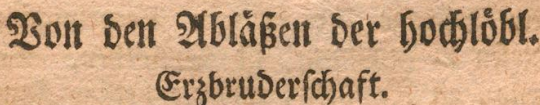 Von den Abläßen der hochlöbl.
Erzbruderschaft.